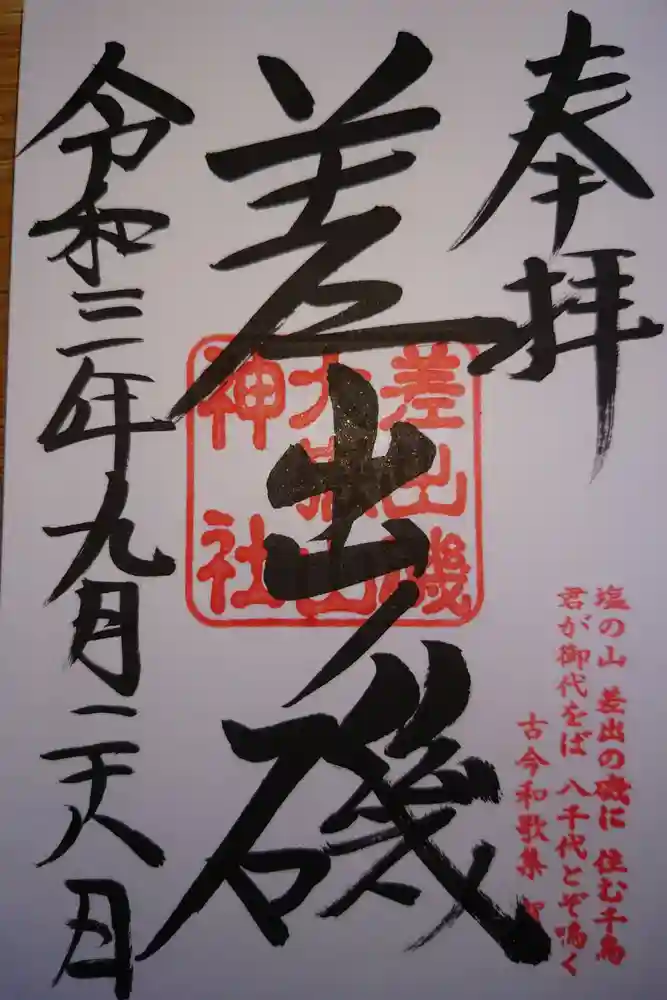 奉拝
塩の山 差出の磯に 住む千鳥
君が御代をば 八千代とぞ鳴く
古今和歌集
差出ノ磯
差出磯
大嶽山
神社
令和三年九月二十八日